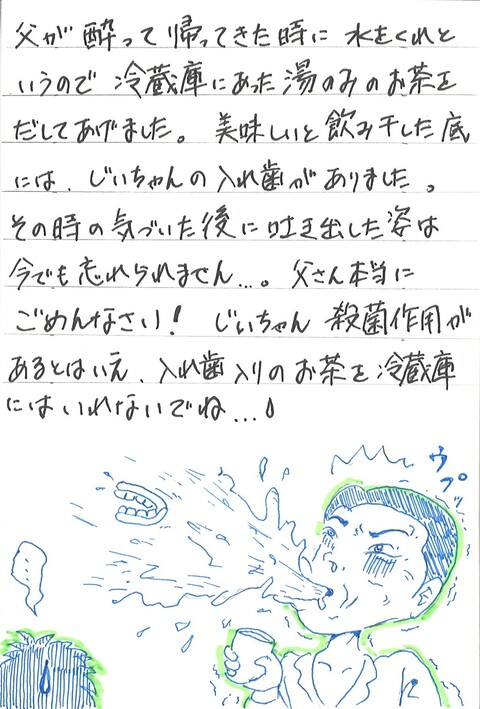 父が酔って帰ってきた時に 水をくれと
いうので 冷蔵庫にあった湯のみのお茶を
だしてあげました。美味しいと飲み干した底
には、じいちゃんの入れ歯がありました。
その時の気づいた後に吐き出した姿は
今でも忘れられません…。父さん本当に
ごめんなさい! じぃちゃん 殺菌作用が
あるとはいえ、入れ歯入りのお茶を冷蔵庫
にはいれないでね…!
ウプッ